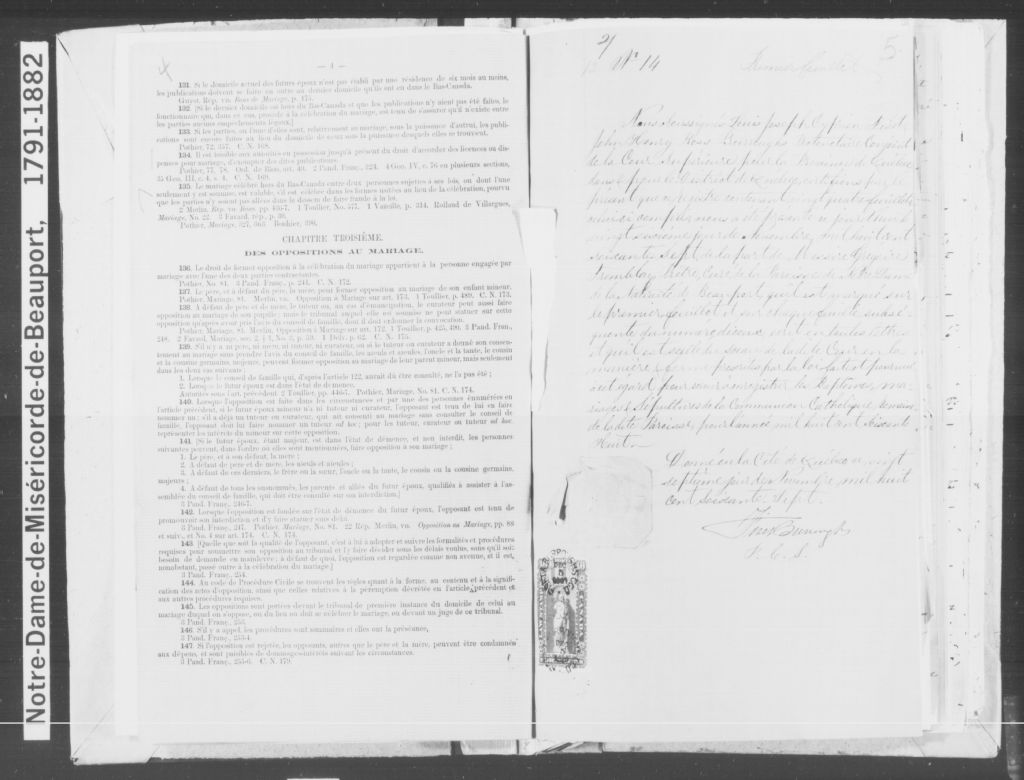 Notre-Dame-de-Miséricorde-de-Beauport, 1791-1882
— 4 —
131. Si le domicile actuel des futurs époux n'est pas établi par une résidence de six mois au moins,
les publications doivent se faire en outre au dernier domicile qu'ils ont eu dans le Bas-Canada.
Guyot, Rép. vo. Bans de Mariage, p. 175.
132. [Si le dernier domicile est hors du Bas-Canada et que les publications n'y aient pas été faites, le
fonctionnaire qui, dans ce cas, procède à la célébration du mariage, est tenu de s'assurer qu'il n'existe entre
les parties aucuns empêchements légaux.]
133. Si les parties, ou l'une d'elles sont, relativement au mariage, sous la puissance d'autrui, les publi-
cations sont encore faites au lieu du domicile de ceux sous la puissance desquels elles se trouvent.
Pothier, 72, 357. C. N. 168.
134. Il est loisible aux autorités en possession jusqu'à présent du droit d'accorder des licences ou dis-
penses pour mariage, d'exempter des dites publications.
Pothier, 77, 78. Ord. de Blois, art. 40. 2 Pand. Franç., 224. 4 Geo. IV, c. 76 en plusieurs sections,
35 Geo. III, c. 4, s. 4. C. N. 169.
135. Le mariage célébré hors du Bas-Canada entre deux personnes sujettes à ses lois, ou dont l'une
seulement y est soumise, est valable, s'il est célébré dans les formes usitées au lieu de la célébration, pourvu
que les parties n'y soient pas allées dans le dessein de faire fraude à la loi.
2 Merlin, Rép. vo. Bans, pp. 456-7. 1 Toullier, No. 577. 1 Vazeille, p. 314. Rolland de Villargues,
Mariage, No. 22. 3 Favard, rép., p. 39.
Pothier, Mariage, 327, 363. Bouhier, 390.
CHAPITRE TROISIÈME.
DES OPPOSITIONS AU MARIAGE.
136. Le droit de former opposition à la célébration du mariage appartient à la personne engagée par
mariage avec l'une des deux parties contractantes.
Pothier, No. 81. 3 Pand. Franç., p. 241. C. N. 172.
137. Le père, et à défaut du père, la mère, peut former opposition au mariage de son enfant mineur.
Pothier, Mariage, 81. Merlin, vo. Opposition à Mariage sur art. 173. 1 Toullier, p. 489. C. N. 173.
138. A défaut de père et de mère, le tuteur ou, en cas d'émancipation, le curateur peut aussi faire
opposition au mariage de son pupille ; mais le tribunal auquel elle est soumise ne peut statuer sur cette
opposition qu'après avoir pris l'avis du conseil de famille, dont il doit ordonner la convocation.
Pothier, Mariage, 81. Merlin, Opposition à Mariage sur art. 172. 1 Toullier, p. 425, 490. 3 Pand. Fran.,
248. 2 Favard, Mariage, sec. 2, § 4, No. 3, p. 59. 1 Delv. p. 62. C. N. 175.
139. S'il n'y a ni père, ni mère, ni tuteur, ni curateur, ou si le tuteur ou curateur a donné son consen-
tement au mariage sans prendre l'avis du conseil de famille, les aïeuls et aïeules, l'oncle et la tante, le cousin
et la cousine germains, majeurs, peuvent former opposition au mariage de leur parent mineur, mais seulement
dans les deux cas suivants :
1. Lorsque le conseil de famille qui, d'après l'article 122, aurait dû être consulté, ne l'a pas été ;
2. Lorsque le futur époux est dans l'état de démence.
Autorités sous l'art. précédent 2 Toullier, pp. 446-7. Pothier, Mariage, No. 81. C. N. 174.
140. Lorsque l'opposition est faite dans les circonstances et par une des personnes énumérées en
l'article précédent, si le futur époux mineur n'a ni tuteur ni curateur, l'opposant est tenu de lui en faire
nommer un ; s'il a déjà un tuteur ou curateur, qui ait consenti au mariage sans consulter le conseil de
famille, l'opposant doit lui faire nommer un tuteur ad hoc ; pour les tuteur, curateur ou tuteur ad hoc,
représenter les intérêts du mineur sur cette opposition.
141. [Si le futur époux, étant majeur, est dans l'état de démence, et non interdit, les personnes
suivantes peuvent, dans l'ordre où elles sont mentionnées, faire opposition à son mariage :
1. Le père, et à son défaut, la mère ;
2. A défaut de père et de mère, les aïeuls et aïeules ;
3. A défaut de ces derniers, le frère ou la sœur, l'oncle ou la tante, le cousin ou la cousine germaine,
majeurs ;
4. A défaut de tous les susnommés, les parents et alliés du futur époux, qualifiés à assister à l'as-
semblée du conseil de famille, qui doit être consulté sur son interdiction.]
3 Pand. Franç., 246-7.
142. Lorsque l'opposition est fondée sur l'état de démence du futur époux, l'opposant est tenu de
promouvoir son interdiction et d'y faire statuer sans délai.
3 Pand. Franç., 247. Pothier, Mariage, No. 81. 22 Rép. Merlin, vo. Opposition au Mariage, pp. 88
et suiv., et No. 4 sur art. 174. C. N. 174.
143. [Quelle que soit la qualité de l'opposant, c'est à lui à adopter et suivre les formalités et procédures
requises pour soumettre son opposition au tribunal et l'y faire décider sous les délais voulus, sans qu'il soit
besoin de demande en mainlevée ; à défaut de quoi, l'opposition est regardée comme non avenue, et il est,
nonobstant, passé outre à la célébration du mariage.]
3 Pand. Franç., 254.
144. Au code de Procédure Civile se trouvent les règles quant à la forme, au contenu et à la signifi-
cation des actes d'opposition, ainsi que celles relatives à la péremption décrétée en l'article précédent et
aux autres procédures requises.
145. Les oppositions sont portées devant le tribunal de première instance du domicile de celui au
mariage duquel on s'oppose, ou du lieu où doit se célébrer le mariage, ou devant un juge de ce tribunal.
3 Pand. Franç., 253.
146. S'il y a appel, les procédures sont sommaires et elles ont la préséance.
3 Pand. Franç., 253-4.
147. Si l'opposition est rejetée, les opposants, autres que le père et la mère, peuvent être condamnés
aux dépens, et sont passibles de dommages-intérêts suivant les circonstances.
3 Pand. Franç., 255-6. C. N. 179.
5
Nº 14
Nous soussignés Louis Joseph Cyprien Fiset
John Henry Ross Burroughs Protonotaire Conjoint
de la Cour Supérieure pour la Province de Québec
dans et pour le District de Québec certifions par le
présent que ce registre contenant vingt quatre feuillets
celui-ci compris nous a été présenté ce jourd'hui
vingt septième jour de Novembre mil huit cent
soixante sept de la part de Messire Grégoire
Tremblay Prêtre, Curé de la Paroisse de
de la Nativité de Beauport, qu'il est marqué sur
le premier feuillet et sur chaque feuille subsé-
quente du numéro d'icelui écrit en toutes lettres
et qu'il est scellé du sceau de la dite Cour en la
manière & forme prescrites par la Loi
à cet égard pour servir à enregistrer les Baptêmes, Ma-
riages & Sépultures de la Communion Catholique romaine
de la dite Paroisse, pour l'année mil huit cent soixante
Huit.
Donné en la Cité de Québec ce vingt
septième jour de Novembre mil huit
cent soixante Sept.
Fiset & Burroughs
P. C. S.